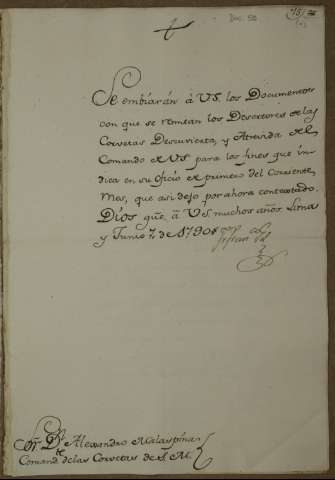 Doc. 50
Se embiarán à V.S. los Documentos
con que se remitan los Desertores de las
Corvetas Descuvierta, y Atrevida del
Comando de VS para los fines que in-
dica en su oficio de primero del Corriente
Mes, que asi dejo por ahora contextado.
Dios gũe. à V.S. muchos años Lima
y Junio 7, de 1790
Sõr. Dn. Alexandro Malaspina
Comandte. de las Corvetas de S. M.